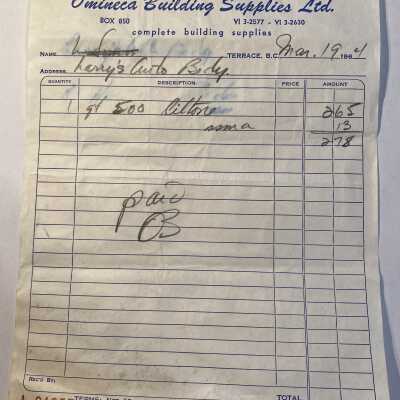 Omineca Building Supplies Ltd.
BOX 850 VI 3-2577 - VI 3-2630
complete building supplies
NAME TERRACE, B.C. Mar. 19 1964
ADDRESS Larry's Auto Body.
QUANTITY DESCRIPTION PRICE AMOUNT
1 qt 500 Ciltone 265
ssma 13
278
paid
OB
REC'D BY:
TERMS: NET TOTAL